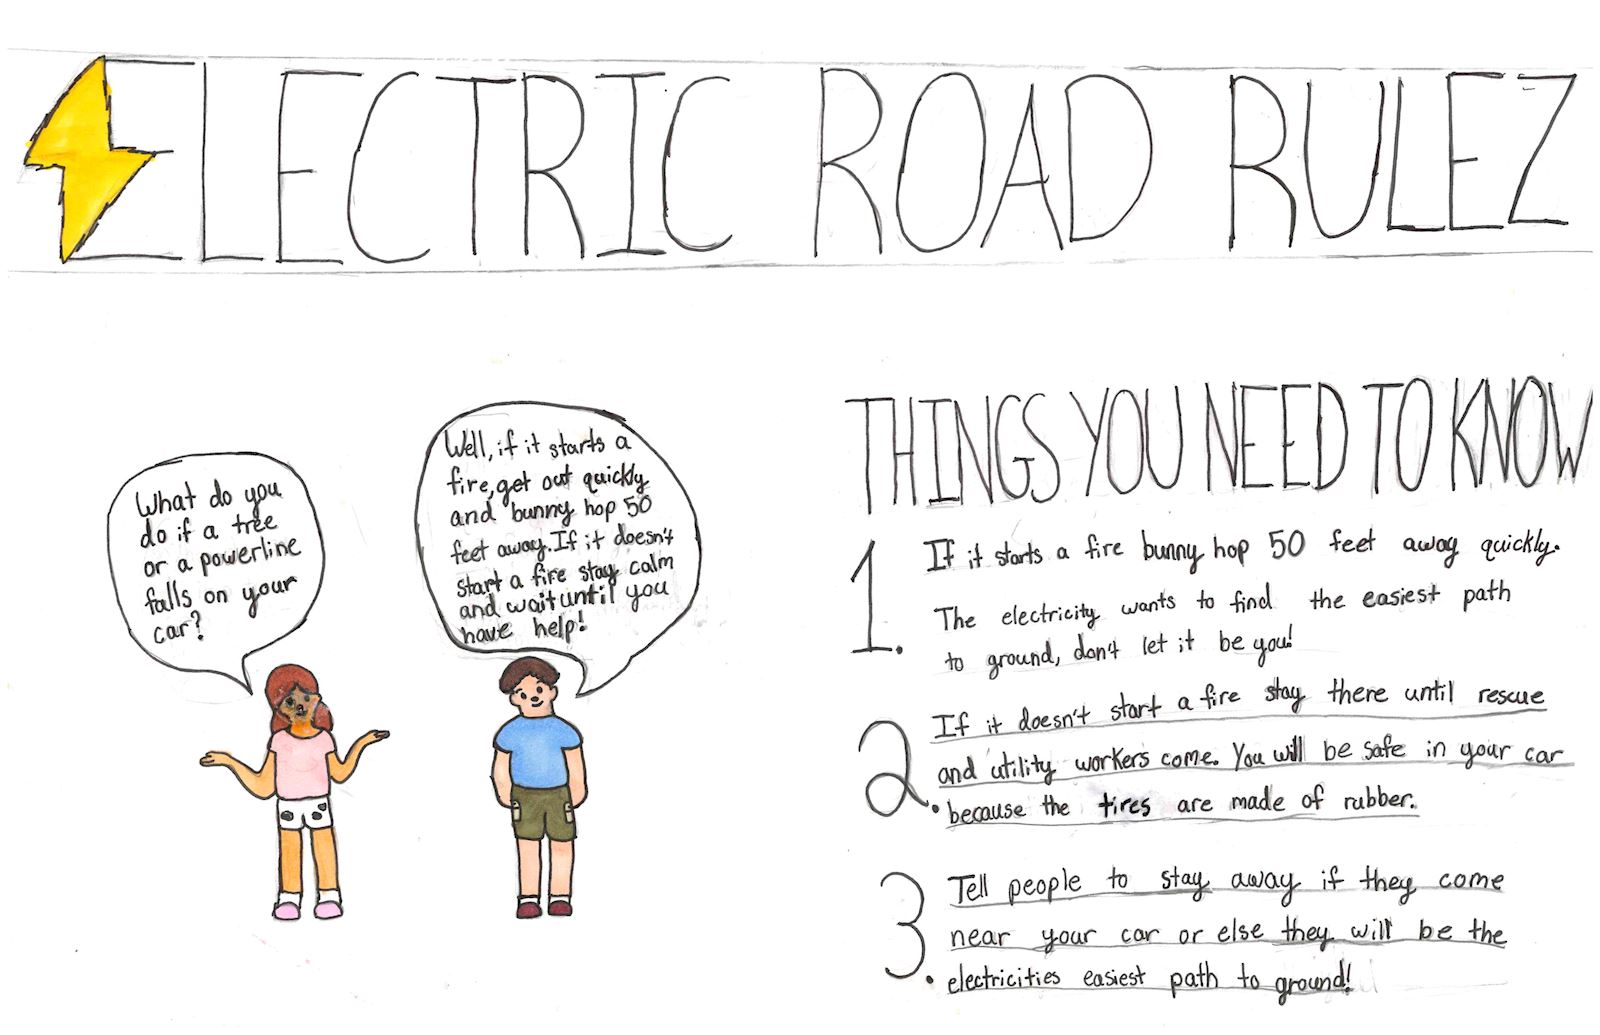 ELECTRIC ROAD RULEZ
What do you
do if a tree
or a powerline
falls on your
car?
Well, if it starts a
fire, get out quickly
and bunny hop 50
feet away. If it doesn't
start a fire stay calm
and wait until you
have help!
THINGS YOU NEED TO KNOW
1. If it starts a fire bunny hop 50 feet away quickly.
The electricity wants to find the easiest path
to ground, don't let it be you!
2. If it doesn't start a fire stay there until rescue
and utility workers come. You will be safe in your car
because the tires are made of rubber.
3. Tell people to stay away if they come
near your car or else they will be the
electricities easiest path to ground!